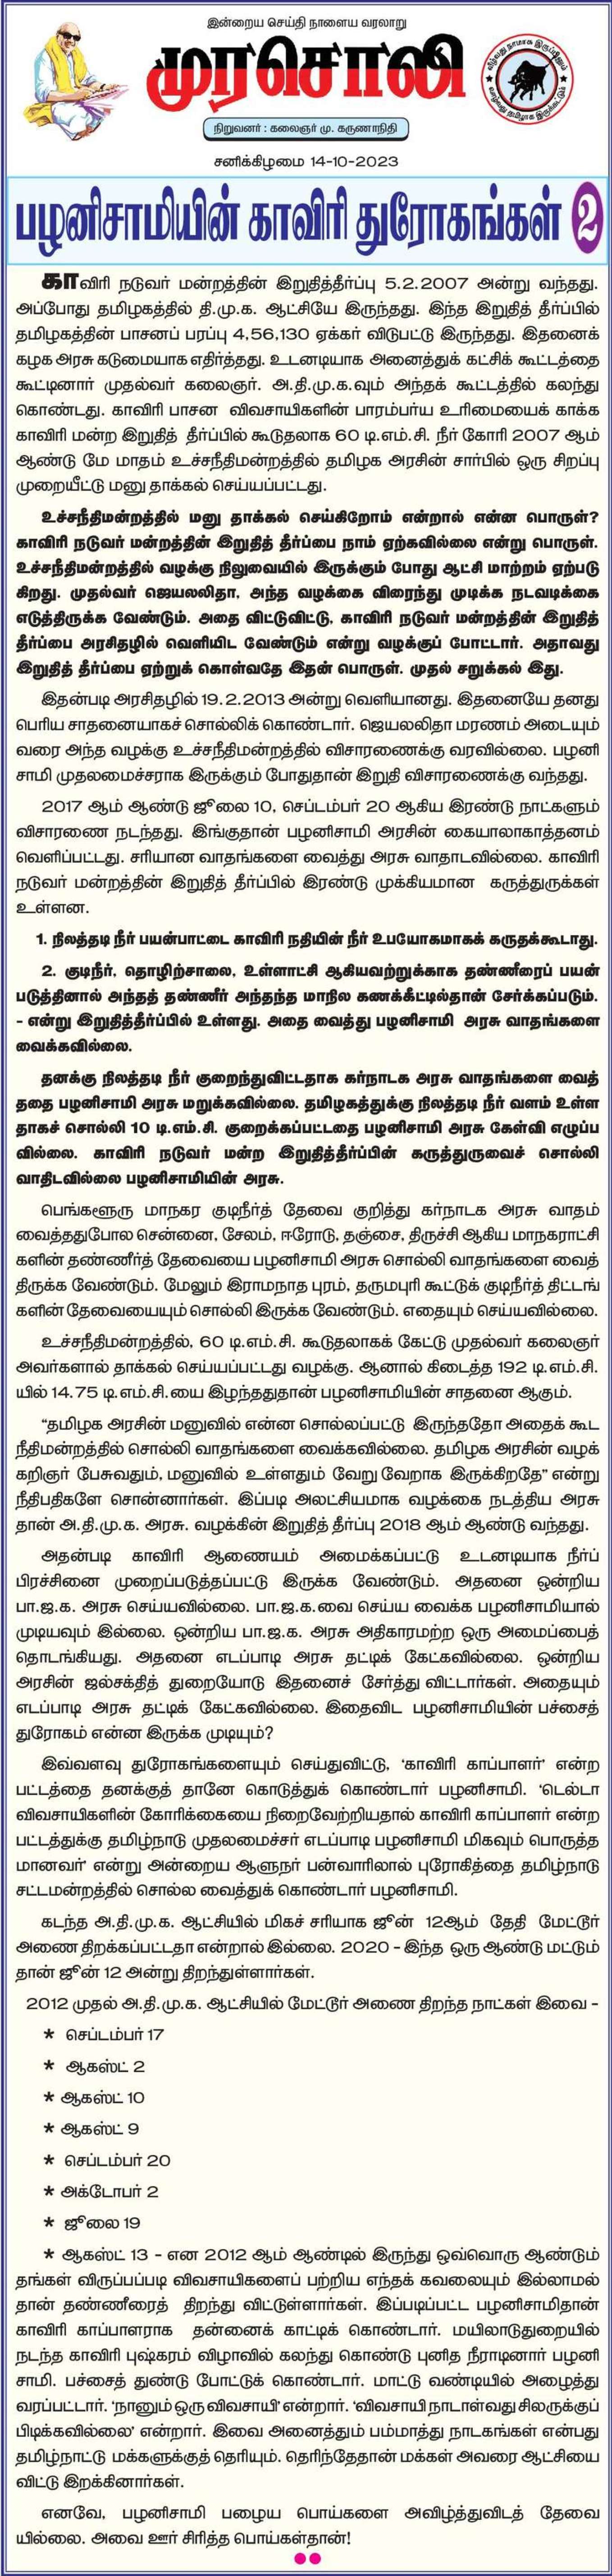 இன்றைய செய்தி நாளைய வரலாறு
முரசொலி
வீழ்வது நாமாக இருப்பினும்
வாழ்வது தமிழாக இருக்கட்டும்
நிறுவனர் : கலைஞர் மு. கருணாநிதி
சனிக்கிழமை 14-10-2023
பழனிசாமியின் காவிரி துரோகங்கள் 2
காவிரி நடுவர் மன்றத்தின் இறுதித்தீர்ப்பு 5.2.2007 அன்று வந்தது.
அப்போது தமிழகத்தில் தி.மு.க. ஆட்சியே இருந்தது. இந்த இறுதித் தீர்ப்பில்
தமிழகத்தின் பாசனப் பரப்பு 4,56,130 ஏக்கர் விடுபட்டு இருந்தது. இதனைக்
கழக அரசு கடுமையாக எதிர்த்தது. உடனடியாக அனைத்துக் கட்சிக் கூட்டத்தை
கூட்டினார் முதல்வர் கலைஞர். அ.தி.மு.க.வும் அந்தக் கூட்டத்தில் கலந்து
கொண்டது. காவிரி பாசன விவசாயிகளின் பாரம்பர்ய உரிமையைக் காக்க
காவிரி மன்ற இறுதித் தீர்ப்பில் கூடுதலாக 60 டி.எம்.சி. நீர் கோரி 2007 ஆம்
ஆண்டு மே மாதம் உச்சநீதிமன்றத்தில் தமிழக அரசின் சார்பில் ஒரு சிறப்பு
முறையீட்டு மனு தாக்கல் செய்யப்பட்டது.
உச்சநீதிமன்றத்தில் மனு தாக்கல் செய்கிறோம் என்றால் என்ன பொருள்?
காவிரி நடுவர் மன்றத்தின் இறுதித் தீர்ப்பை நாம் ஏற்கவில்லை என்று பொருள்.
உச்சநீதிமன்றத்தில் வழக்கு நிலுவையில் இருக்கும் போது ஆட்சி மாற்றம் ஏற்படு
கிறது. முதல்வர் ஜெயலலிதா, அந்த வழக்கை விரைந்து முடிக்க நடவடிக்கை
எடுத்திருக்க வேண்டும். அதை விட்டுவிட்டு, காவிரி நடுவர் மன்றத்தின் இறுதித்
தீர்ப்பை அரசிதழில் வெளியிட வேண்டும் என்று வழக்குப் போட்டார். அதாவது
இறுதித் தீர்ப்பை ஏற்றுக் கொள்வதே இதன் பொருள். முதல் சறுக்கல் இது.
இதன்படி அரசிதழில் 19.2.2013 அன்று வெளியானது. இதனையே தனது
பெரிய சாதனையாகச் சொல்லிக் கொண்டார். ஜெயலலிதா மரணம் அடையும்
வரை அந்த வழக்கு உச்சநீதிமன்றத்தில் விசாரணைக்கு வரவில்லை. பழனி
சாமி முதலமைச்சராக இருக்கும் போதுதான் இறுதி விசாரணைக்கு வந்தது.
2017 ஆம் ஆண்டு ஜூலை 10, செப்டம்பர் 20 ஆகிய இரண்டு நாட்களும்
விசாரணை நடந்தது. இங்குதான் பழனிசாமி அரசின் கையாலாகாத்தனம்
வெளிப்பட்டது. சரியான வாதங்களை வைத்து அரசு வாதாடவில்லை. காவிரி
நடுவர் மன்றத்தின் இறுதித் தீர்ப்பில் இரண்டு முக்கியமான கருத்துருக்கள்
உள்ளன.
1. நிலத்தடி நீர் பயன்பாட்டை காவிரி நதியின் நீர் உபயோகமாகக் கருதக்கூடாது.
2. குடிநீர், தொழிற்சாலை, உள்ளாட்சி ஆகியவற்றுக்காக தண்ணீரைப் பயன்
படுத்தினால் அந்தத் தண்ணீர் அந்தந்த மாநில கணக்கீட்டில்தான் சேர்க்கப்படும்.
- என்று இறுதித்தீர்ப்பில் உள்ளது. அதை வைத்து பழனிசாமி அரசு வாதங்களை
வைக்கவில்லை.
தனக்கு நிலத்தடி நீர் குறைந்துவிட்டதாக கர்நாடக அரசு வாதங்களை வைத்
ததை பழனிசாமி அரசு மறுக்கவில்லை. தமிழகத்துக்கு நிலத்தடி நீர் வளம் உள்ள
தாகச் சொல்லி 10 டி.எம்.சி. குறைக்கப்பட்டதை பழனிசாமி அரசு கேள்வி எழுப்ப
வில்லை. காவிரி நடுவர் மன்ற இறுதித்தீர்ப்பின் கருத்துருவைச் சொல்லி
வாதிடவில்லை பழனிசாமியின் அரசு.
பெங்களூரு மாநகர குடிநீர்த் தேவை குறித்து கர்நாடக அரசு வாதம்
வைத்ததுபோல சென்னை, சேலம், ஈரோடு, தஞ்சை, திருச்சி ஆகிய மாநகராட்சி
களின் தண்ணீர்த் தேவையை பழனிசாமி அரசு சொல்லி வாதங்களை வைத்
திருக்க வேண்டும். மேலும் இராமநாத புரம், தருமபுரி கூட்டுக் குடிநீர்த் திட்டங்
களின் தேவையையும் சொல்லி இருக்க வேண்டும். எதையும் செய்யவில்லை.
உச்சநீதிமன்றத்தில், 60 டி.எம்.சி. கூடுதலாகக் கேட்டு முதல்வர் கலைஞர்
அவர்களால் தாக்கல் செய்யப்பட்டது வழக்கு. ஆனால் கிடைத்த 192 டி.எம்.சி.
யில் 14.75 டி.எம்.சி.யை இழந்ததுதான் பழனிசாமியின் சாதனை ஆகும்.
“தமிழக அரசின் மனுவில் என்ன சொல்லப்பட்டு இருந்ததோ அதைக் கூட
நீதிமன்றத்தில் சொல்லி வாதங்களை வைக்கவில்லை. தமிழக அரசின் வழக்
கறிஞர் பேசுவதும், மனுவில் உள்ளதும் வேறு வேறாக இருக்கிறதே” என்று
நீதிபதிகளே சொன்னார்கள். இப்படி அலட்சியமாக வழக்கை நடத்திய அரசு
தான் அ.தி.மு.க. அரசு. வழக்கின் இறுதித் தீர்ப்பு 2018 ஆம் ஆண்டு வந்தது.
அதன்படி காவிரி ஆணையம் அமைக்கப்பட்டு உடனடியாக நீர்ப்
பிரச்சினை முறைப்படுத்தப்பட்டு இருக்க வேண்டும். அதனை ஒன்றிய
பா.ஜ.க. அரசு செய்யவில்லை. பா.ஜ.க.வை செய்ய வைக்க பழனிசாமியால்
முடியவும் இல்லை. ஒன்றிய பா.ஜ.க. அரசு அதிகாரமற்ற ஒரு அமைப்பைத்
தொடங்கியது. அதனை எடப்பாடி அரசு தட்டிக் கேட்கவில்லை. ஒன்றிய
அரசின் ஜல்சக்தித் துறையோடு இதனைச் சேர்த்து விட்டார்கள். அதையும்
எடப்பாடி அரசு தட்டிக் கேட்கவில்லை. இதைவிட பழனிசாமியின் பச்சைத்
துரோகம் என்ன இருக்க முடியும்?
இவ்வளவு துரோகங்களையும் செய்துவிட்டு, ‘காவிரி காப்பாளர்’ என்ற
பட்டத்தை தனக்குத் தானே கொடுத்துக் கொண்டார் பழனிசாமி. ‘டெல்டா
விவசாயிகளின் கோரிக்கையை நிறைவேற்றியதால் காவிரி காப்பாளர் என்ற
பட்டத்துக்கு தமிழ்நாடு முதலமைச்சர் எடப்பாடி பழனிசாமி மிகவும் பொருத்த
மானவர்’ என்று அன்றைய ஆளுநர் பன்வாரிலால் புரோகித்தை தமிழ்நாடு
சட்டமன்றத்தில் சொல்ல வைத்துக் கொண்டார் பழனிசாமி.
கடந்த அ.தி.மு.க. ஆட்சியில் மிகச் சரியாக ஜூன் 12ஆம் தேதி மேட்டூர்
அணை திறக்கப்பட்டதா என்றால் இல்லை. 2020 - இந்த ஒரு ஆண்டு மட்டும்
தான் ஜூன் 12 அன்று திறந்துள்ளார்கள்.
2012 முதல் அ.தி.மு.க. ஆட்சியில் மேட்டூர் அணை திறந்த நாட்கள் இவை -
* செப்டம்பர் 17
* ஆகஸ்ட் 2
* ஆகஸ்ட் 10
* ஆகஸ்ட் 9
* செப்டம்பர் 20
* அக்டோபர் 2
* ஜூலை 19
* ஆகஸ்ட் 13 - என 2012 ஆம் ஆண்டில் இருந்து ஒவ்வொரு ஆண்டும்
தங்கள் விருப்பப்படி விவசாயிகளைப் பற்றிய எந்தக் கவலையும் இல்லாமல்
தான் தண்ணீரைத் திறந்து விட்டுள்ளார்கள். இப்படிப்பட்ட பழனிசாமிதான்
காவிரி காப்பாளராக தன்னைக் காட்டிக் கொண்டார். மயிலாடுதுறையில்
நடந்த காவிரி புஷ்கரம் விழாவில் கலந்து கொண்டு புனித நீராடினார் பழனி
சாமி. பச்சைத் துண்டு போட்டுக் கொண்டார். மாட்டு வண்டியில் அழைத்து
வரப்பட்டார். ‘நானும் ஒரு விவசாயி’ என்றார். ‘விவசாயி நாடாள்வது சிலருக்குப்
பிடிக்கவில்லை’ என்றார். இவை அனைத்தும் பம்மாத்து நாடகங்கள் என்பது
தமிழ்நாட்டு மக்களுக்குத் தெரியும். தெரிந்தேதான் மக்கள் அவரை ஆட்சியை
விட்டு இறக்கினார்கள்.
எனவே, பழனிசாமி பழைய பொய்களை அவிழ்த்துவிடத் தேவை
யில்லை. அவை ஊர் சிரித்த பொய்கள்தான்!